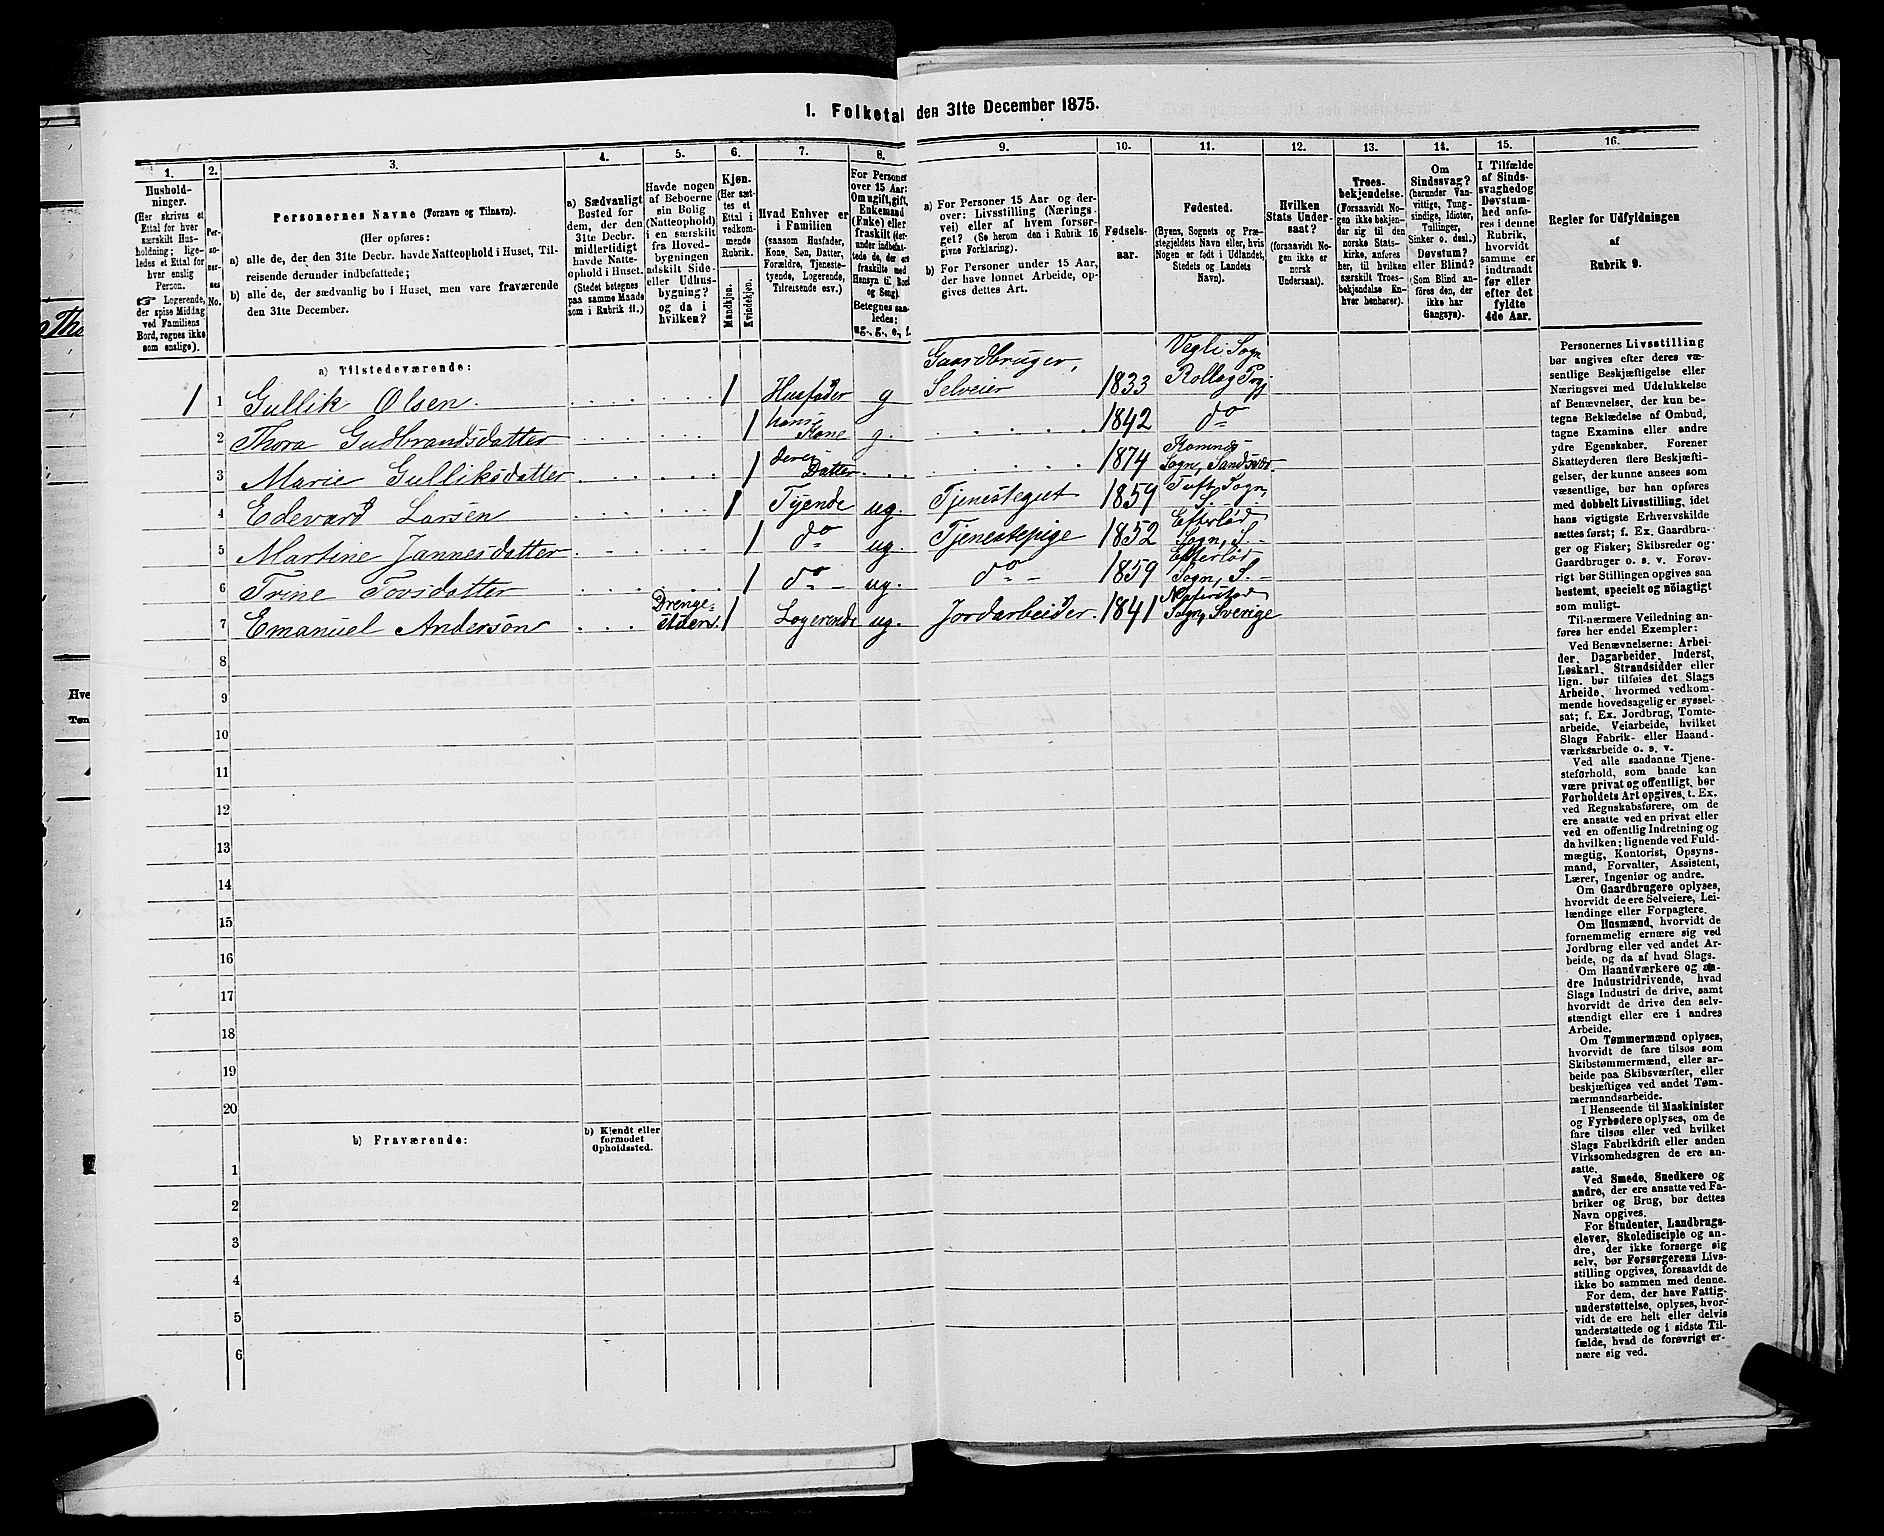 1. Folketal den 31te December 1875.
1.
Hushold-
ninger.
(Her skrives et
Ettal for hver
særskilt Hus-
holdning; lige-
ledes et Ettal for
hver enslig
Person.
☞ Logerende,
der spise Middag
ved Familiens
Bord, regnes ikke
som enslige).
2.
Per-
so-
ner-
nes
No.
3.
Personernes Navne (Fornavn og Tilnavn).
(Her opføres:
a) alle de, der den 31te Decbr. havde Natteophold i Huset, Til-
reisende derunder indbefattede;
b) alle de, der sædvanlig bo i Huset, men vare fraværende
den 31te December.
4.
a) Sædvanligt
Bosted for
dem, der den
31te Decbr.
midlertidigt
havde Natte-
ophold i Huset.
(Stedet betegnes
paa samme Maade
som i Rubrik 11.)
5.
Havde nogen
af Beboerne
sin Bolig
(Natteophold)
i en særskilt
fra Hoved-
bygningen
adskilt Side-
eller Udhus-
bygning?
og da i
hvilken?
6.
Kjøn.
(Her sæt-
tes et
Ettal i
vedkom-
mende
Rubrik.
Mandkjøn.
Kvindekjøn.
7.
Hvad Enhver er
i Familien
(saasom Husfader,
Kone, Søn, Datter,
Forældre, Tjeneste-
tyende, Logerende,
Tilreisende osv.)
8.
For Personer
over 15 Aar:
Om ugift, gift,
Enkemand
(Enke) eller
fraskilt (der-
under indbefat-
tede de, der ere
fraskilte med
Hensyn til Bord
og Seng).
Betegnes saa-
ledes:
ug., g., e., f.
9.
a) For Personer 15 Aar og der-
over: Livsstilling (Nærings-
vei) eller af hvem forsør-
get? (Se herom den i Rubrik 16
givne Forklaring).
b) For Personer under 15 Aar,
der have lønnet Arbeide, op-
gives dettes Art.
10.
Fødsels-
aar.
11.
Fødested.
(Byens, Sognets og Præ-
stegjeldets Navn eller, hvis
Nogen er født i Udlandet,
Stedets og Landets
Navn).
12.
Hvilken
Stats Under-
saat?
(forsaavidt No-
gen ikke er
norsk
Undersaat).
13.
Troes-
bekjendelse.
(Forsaavidt No-
gen ikke bekjen-
der sig til den
norske Stats-
kirke, anføres
her, til hvilken
særskilt Troes-
bekjendelse En-
hver henhører).
14.
Om
Sindssvag?
(herunder Van-
vittige, Tung-
sindige, Idioter,
Tullinger,
Sinker o. desl.)
Døvstum?
eller Blind?
(Som Blind an-
føres den, der
ikke har
Gangsyn).
15.
I Tilfælde
af Sinds-
svaghed og
Døvstum-
hed anfø-
res i denne
Rubrik,
hvorvidt
samme er
indtraadt
før eller
efter det
fyldte
4de Aar.
16.
Regler for Udfyldningen
af
Rubrik 9.
a) Tilstedeværende:
1 1 Gullik Olsen 1 Husfader g Gaardbruger, Selveier 1833 Vegli Sogn Rollag Prgj
2 Thora Gudbrandsdatter 1 hans Kone g. 1842 do
3 Marie Gulliksdatter 1 deres Datter 1874 Komnæs Sogn, Sandsvær.
4 Edevard Larsen 1 Tyende ug. Tjenestegut 1859 Tuft Sogn, S.
5 Martine Jannesdatter 1 do ug. Tjenestepige 1852 Efterlød Sogn, S.
6 Trine Tovsdatter 1 do ug. do 1859 Efterlød Sogn, S.
7 Emanuel Anderson Drenge- stuen. 1 Logerende ug. Jordarbeider. 1841 Sogn, Sverige
8
9
10
11
12
13
14
15
16
17
18
19
20
b) Fraværende:
b) Kjendt eller
formodet
Opholdssted.
1
2
3
4
5
6
Personernes Livsstilling
bør angives efter deres væ-
sentlige Beskjæftigelse eller
Næringsvei med Udelukkelse
af Benævnelser, der kun be-
tegne Beklædelse af Ombud,
tagne Examina eller andre
ydre Egenskaber. Forener
Skatteyderen flere Beskjæfti-
gelser, der kunne ansees som
væsentlige, bør han opføres
med dobbelt Livsstilling, idet
hans vigtigste Erhvervskilde
sættes først; f. Ex. Gaardbru-
ger og Fisker; Skibsreder og
Gaardbruger o. s. v. Forøv-
rigt bør Stillingen opgives saa
bestemt, specielt og nöiagtigt
som muligt.
Til nærmere Veiledning an-
føres her endel Exempler:
Ved Benævnelserne: Arbei-
der, Dagarbeider, Inderst,
Løskarl, Strandsidder eller
lign. bør tilføies det Slags
Arbeide, hvormed vedkom-
mende hovedsagelig er syssel-
sat; f. Ex. Jordbrug, Tomte-
arbeide, Veiarbeide, hvilket
Slags Fabrik- eller Haand-
værksarbeide o. s. v.
Ved alle saadanne Tjene-
steforhold, som baade kan
være privat og offentligt, bør
Forholdets Art opgives, t. Ex.
ved Regnskabsførere, om de
ere ansatte ved en privat eller
ved en offentlig Indretning og
da hvilken; lignende ved Fuld-
mægtig, Kontorist, Opsyns-
mand, Forvalter, Assistent,
Lærer, Ingeniør og andre.
Om Gaardbrugere oplyses,
hvorvidt de ere Selveiere, Lei-
lændinge eller Forpagtere.
Om Husmænd, hvorvidt de
fornemmelig ernære sig ved
Jordbrug eller ved andet Ar-
beide, og da af hvad Slags.
Om Haandværkere og an-
dre Industridrivende, hvad
Slags Industri de drive, samt
hvorvidt de drive den selv-
stændigt eller ere i andres
Arbeide.
Om Tømmermænd oplyses,
hvorvidt de fare tilsøs som
Skibstømmermænd, eller ar-
beide paa Skibsværfter, eller
beskjæftiges ved andet Tøm-
mermandsarbeide.
I Henseende til Maskinister
og Fyrbødere oplyses, om de
fare tilsøs eller ved hvilket
Slags Fabrikdrift eller anden
Virksomhedsgren de ere an-
satte.
Ved Smede, Snedkere og
andre, der ere ansatte ved Fa-
briker og Brug, bør dettes
Navn opgives.
For Studenter, Landbrugs-
elever, Skoledisciple og an-
dre, der ikke forsørge sig
selv, bør Forsørgerens Livs-
stilling opgives, forsaavidt de
ikke bo sammen med denne.
For dem, der have Fattig-
understøttelse, oplyses, hvor-
vidt de ere helt eller delvis
understøttede og i sidste Til-
fælde, hvad de forøvrigt er-
nære sig ved.